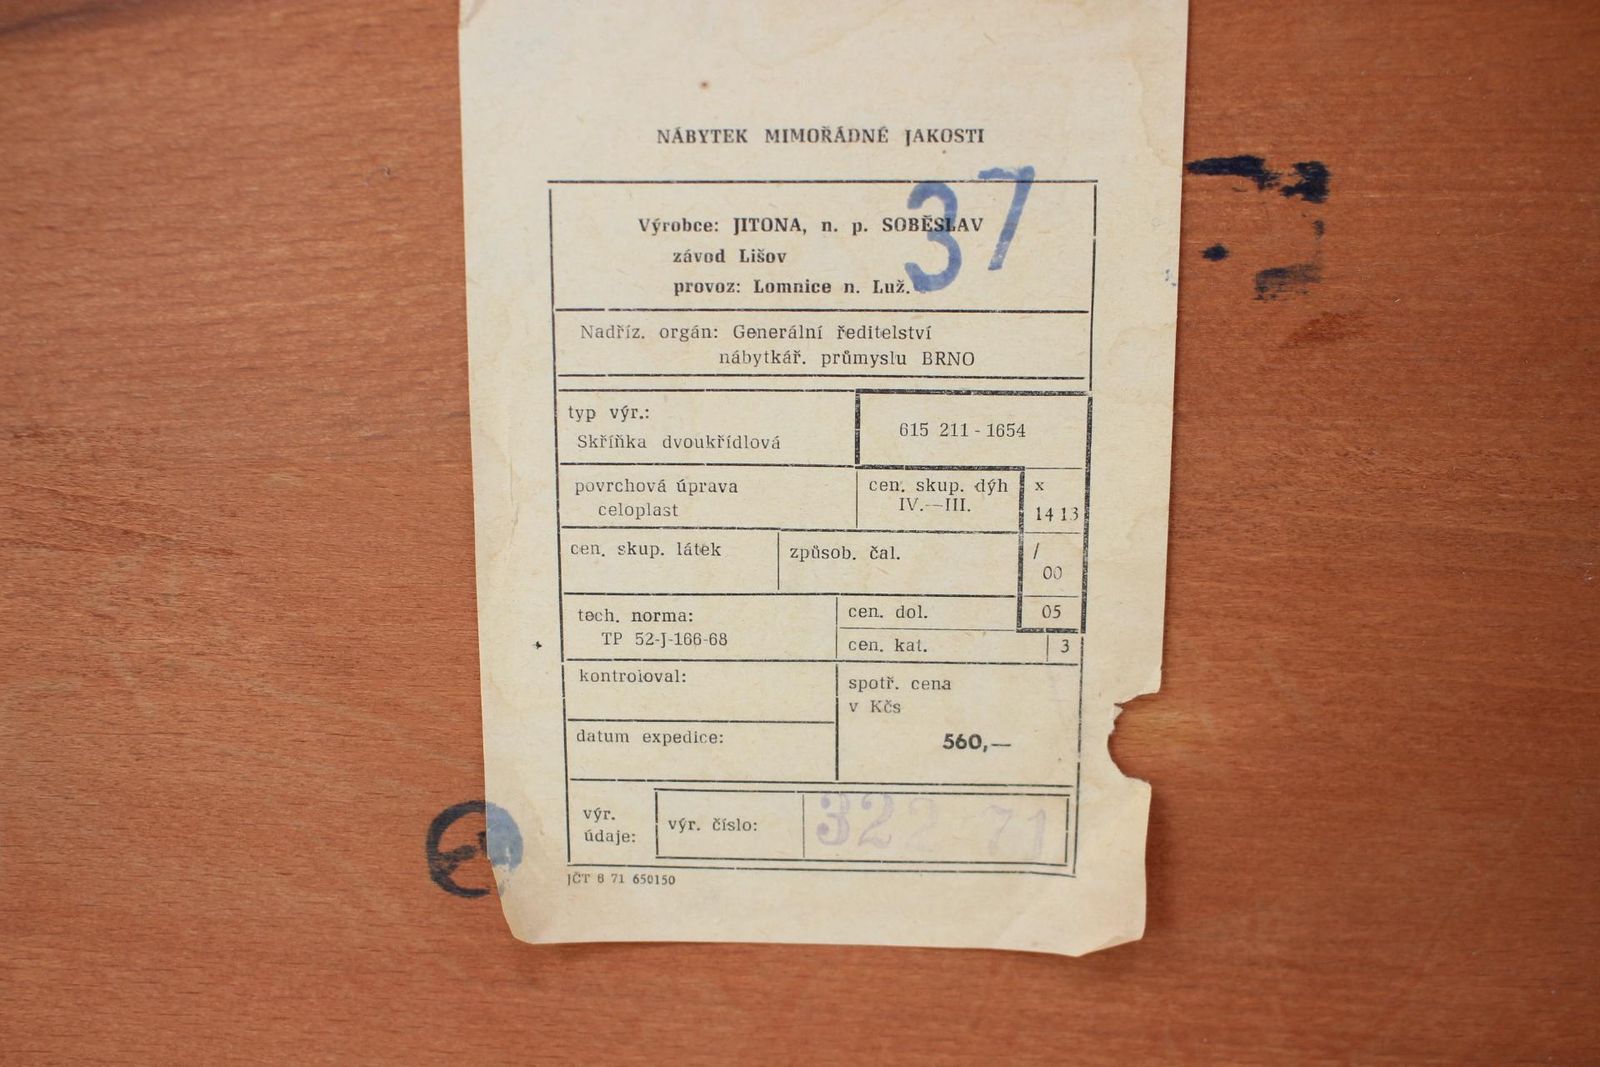 NÁBYTEK MIMOŘÁDNÉ JAKOSTI
37
Výrobce: JITONA, n. p. SOBĚSLAV
závod Lišov
provoz: Lomnice n. Luž.
Nadříz. orgán: Generální ředitelství
nábytkář. průmyslu BRNO
typ výr.:
Skříňka dvoukřídlová
615 211 - 1654
povrchová úprava
celoplast
cen. skup. dýh
IV.—III.
x
14 13
cen. skup. látek
způsob. čal.
/
00
tech. norma:
TP 52-J-166-68
cen. dol.
05
cen. kat.
3
kontroioval:
spotř. cena
v Kčs
560,—
datum expedice:
výr.
údaje:
výr. číslo:
322 71
JČT 6 71 650150